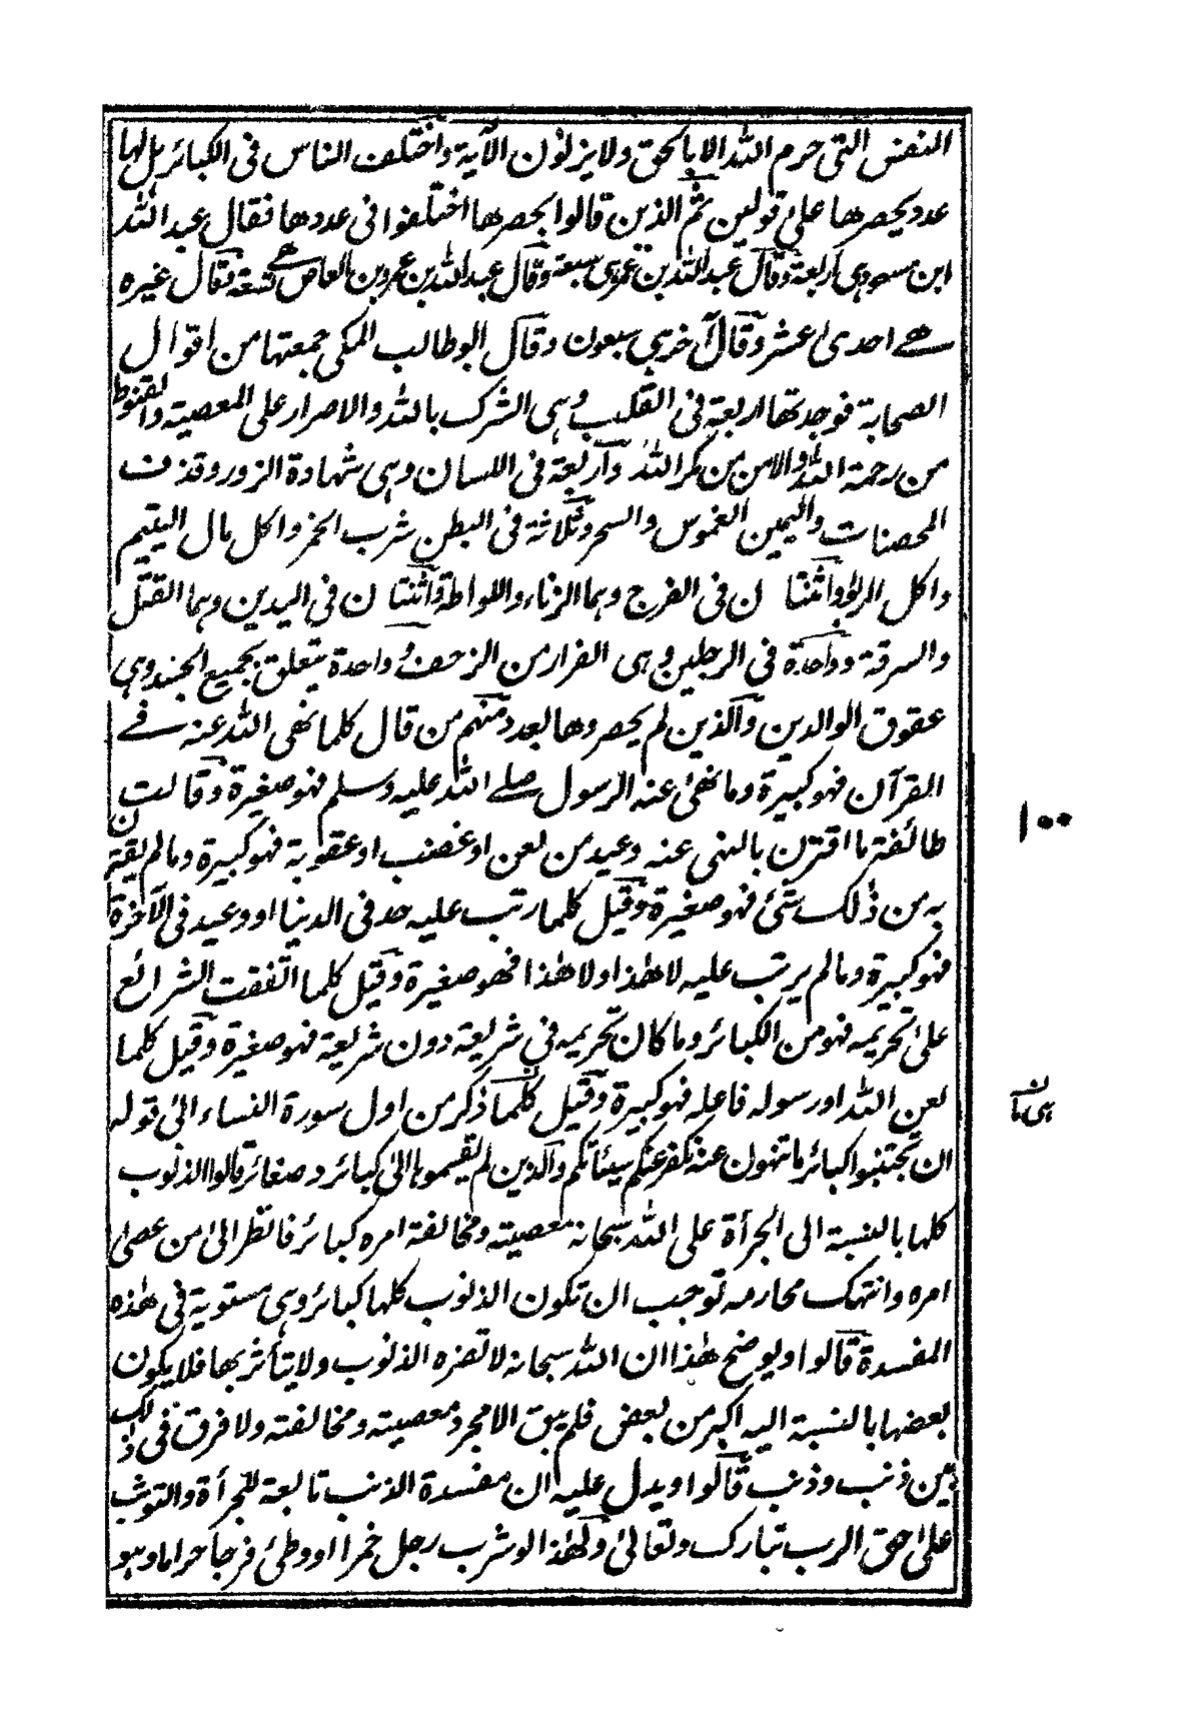 النفس التى حرم الله الا بالحق ولا يزنون الآية واختلف الناس فى الكبائر هل لها
عدد يحصرها على قولين ثم الذين قالوا بحصرها اختلفوا فى عددها فقال عبد الله
ابن مسعود هى اربعة وقال عبد الله بن عمر هى سبعة وقال عبد الله بن عمرو بن العاص هے تسعة وقال غيره
هے احدى عشر وقال آخر هى سبعون وقال ابو طالب المكى جمعتها من اقوال
الصحابة فوجدتها اربعة فى القلب وهى الشرك بالله والاصرار على المعصية والقنوط
من رحمة الله والامن من مكر الله واربعة فى اللسان وهى شهادة الزور وقذف
المحصنات واليمين الغموس والسحر وثلاثة فى البطن شرب الخمر واكل مال اليتيم
واكل الربوا واثنتان فى الفرج وهما الزناء واللواطة واثنتان فى اليدين وهما القتل
والسرقة وواحدة فى الرجلين وهى الفرار من الزحف وواحدة يتعلق بجميع الجسد وهى
عقوق الوالدين والذين لم يحصروها بعدد منهم من قال كلما نهى الله عنه فے
القرآن فهو كبيرة وما نهى عنه الرسول صلے الله عليه وسلم فهو صغيرة وقالت
طائفة ما اقترن بالنهى عنه وعيد من لعن او غضب او عقوبة فهو كبيرة وما لم يقترن
به من ذلك شئ فهو صغيرة وقيل كلما رتب عليه حد فى الدنيا او وعيد فى الآخرة
فهو كبيرة وما لم يرتب عليه لا هذا ولا هذا فهو صغيرة وقيل كلما اتفقت الشرائع
على تحريمه فهو من الكبائر وما كان تحريمه فى شريعة دون شريعة فهو صغيرة وقيل كلما
لعن الله او رسوله فاعله فهو كبيرة وقيل كلما ذكر من اول سورة النساء الى قوله
ان تجتنبوا كبائر ما تنهون عنه نكفر عنكم سيئاتكم والذين لم يقسموها الى كبائر وصغائر قالوا الذنوب
كلها بالنسبة الى الجرأة على الله سبحانه معصيته ومخالفة امره كبائر فالنظر الى من عصى
امره وانتهك محارمه توجب ان تكون الذنوب كلها كبائر وهى مستوية فى هذه
المفسدة قالوا ويوضح هذا ان الله سبحانه لا تضره الذنوب ولا يتأثر بها فلا يكون
بعضها بالنسبة اليه اكبر من بعض فلم يبق الا مجرد معصيته ومخالفته ولا فرق فى ذلك
بين ذنب وذنب قالوا ويدل عليه ان مفسدة الذنب تابعة للجرأة والتوثب
على حق الرب تبارك وتعالى ولهذا لو شرب رجل خمرا او وطئ فرجا حراما وهو
١٠٠